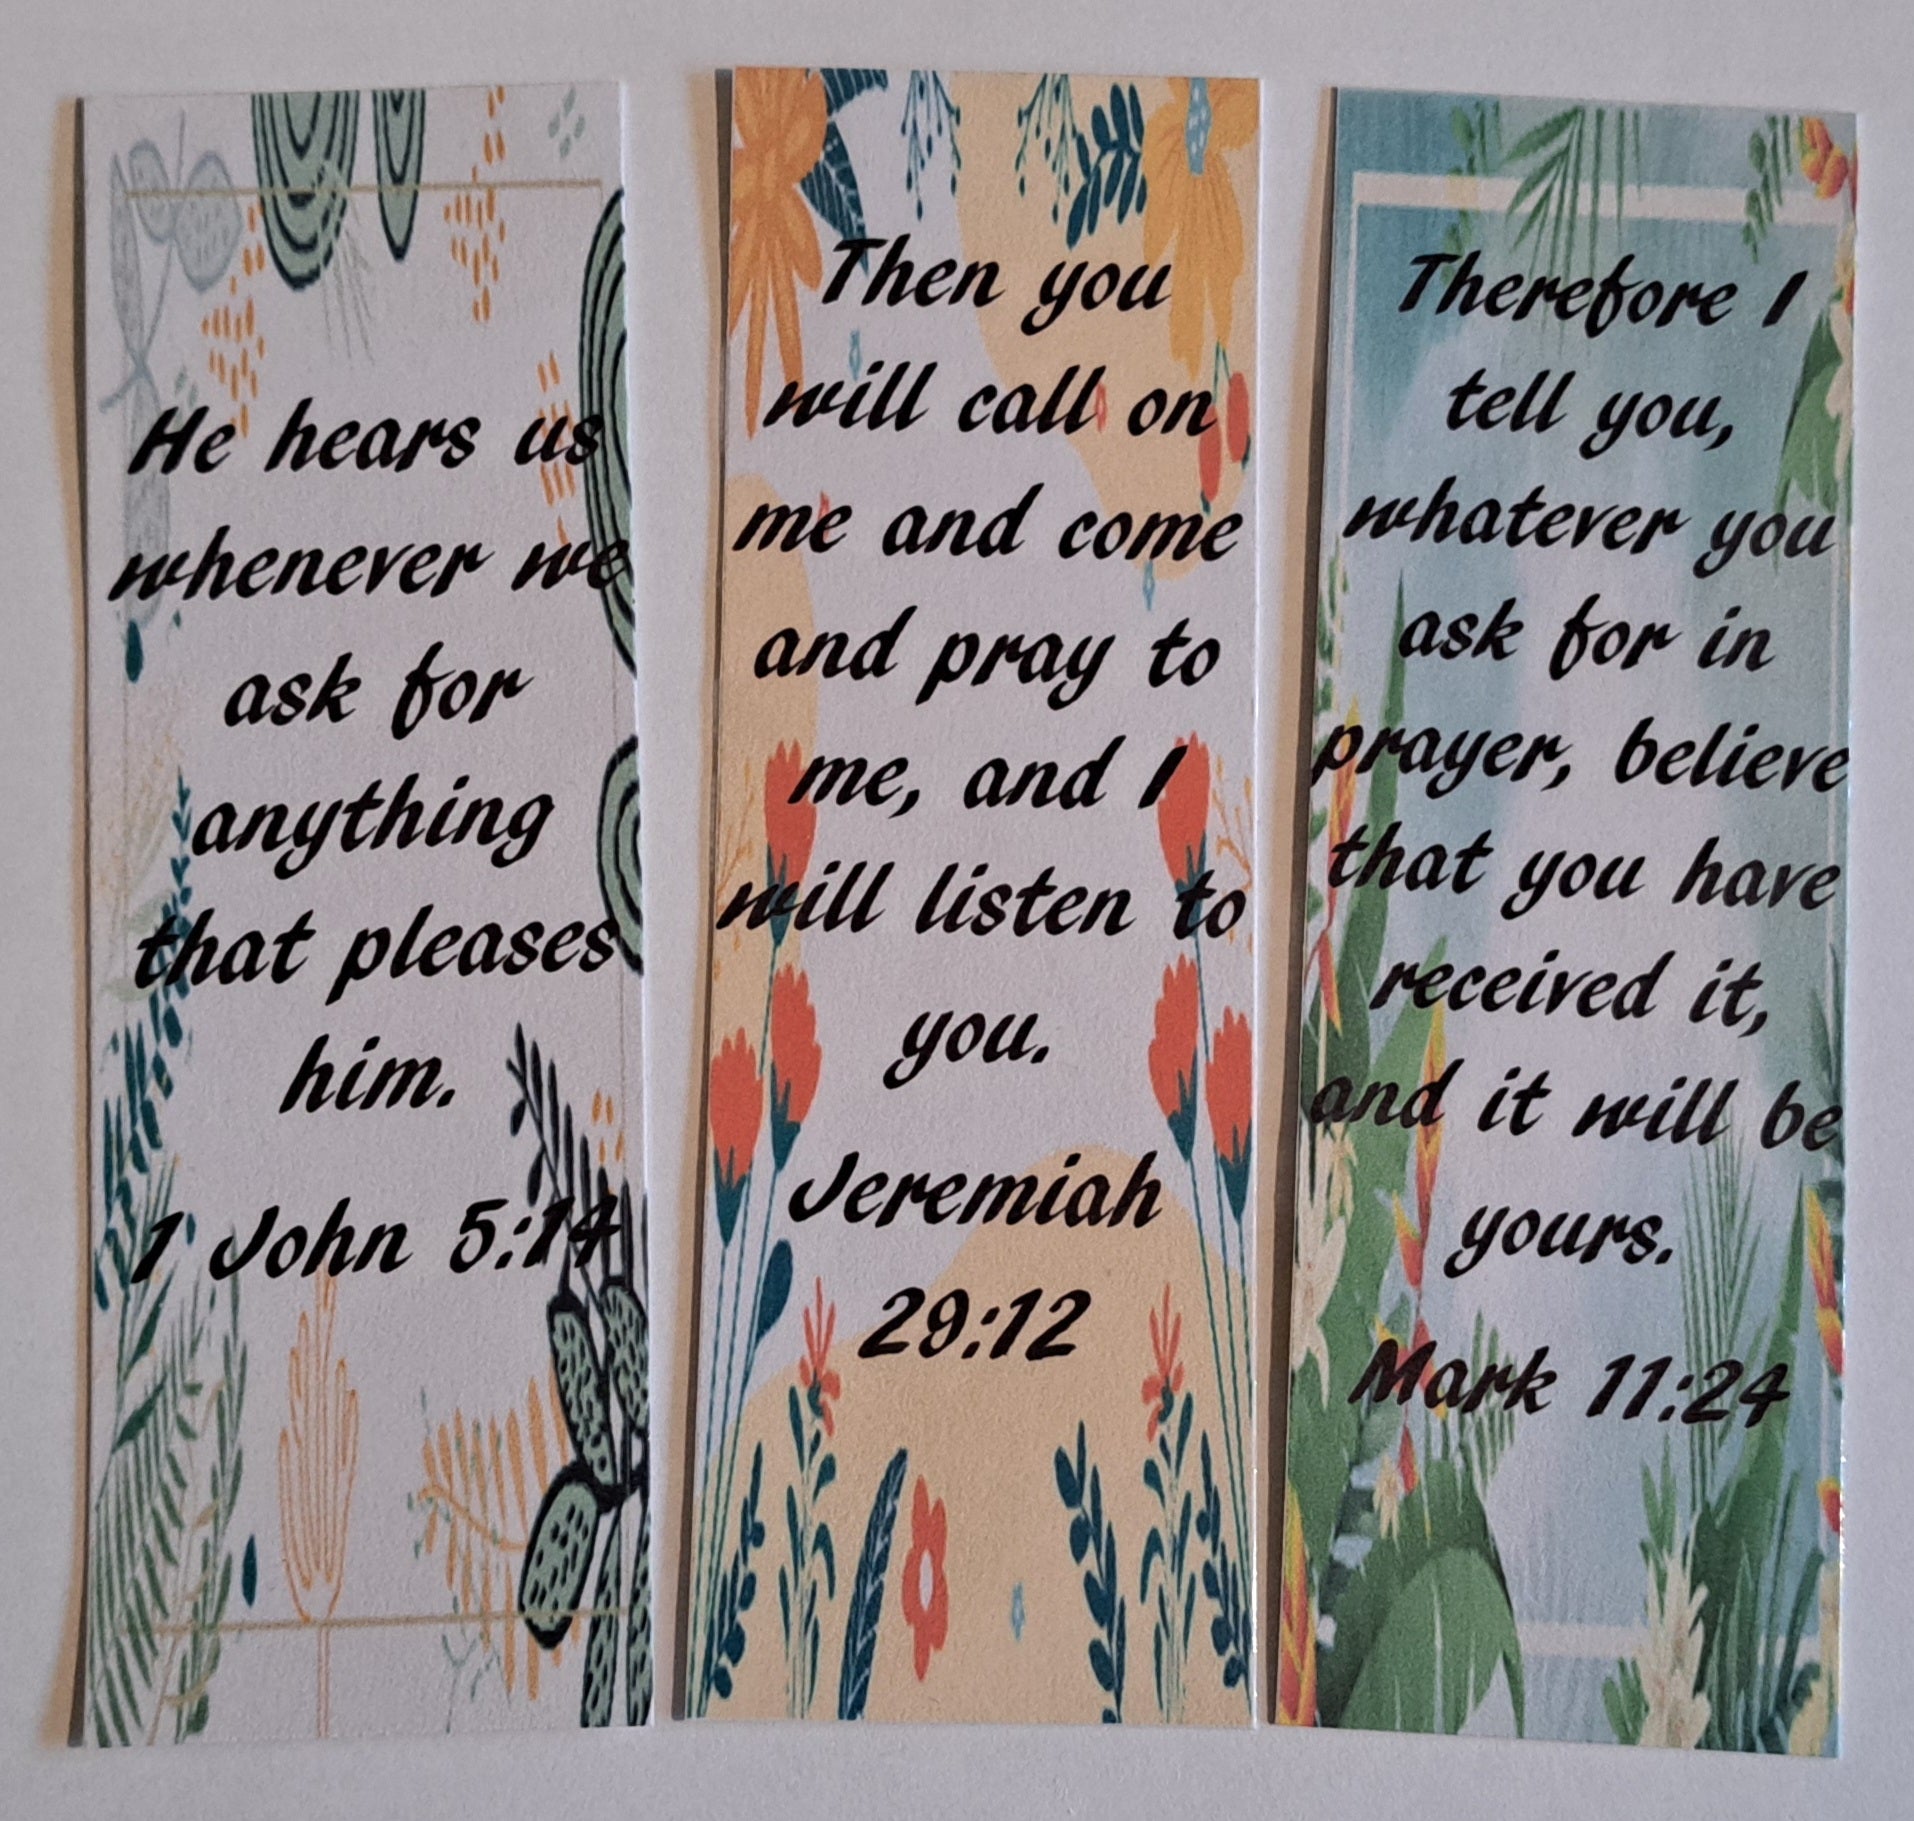 He hears us
whenever we
ask for
anything
that pleases
him.
1 John 5:14
Then you
will call on
me and come
and pray to
me, and I
will listen to
you.
Jeremiah
29:12
Therefore I
tell you,
whatever you
ask for in
prayer, believe
that you have
received it,
and it will be
yours.
Mark 11:24